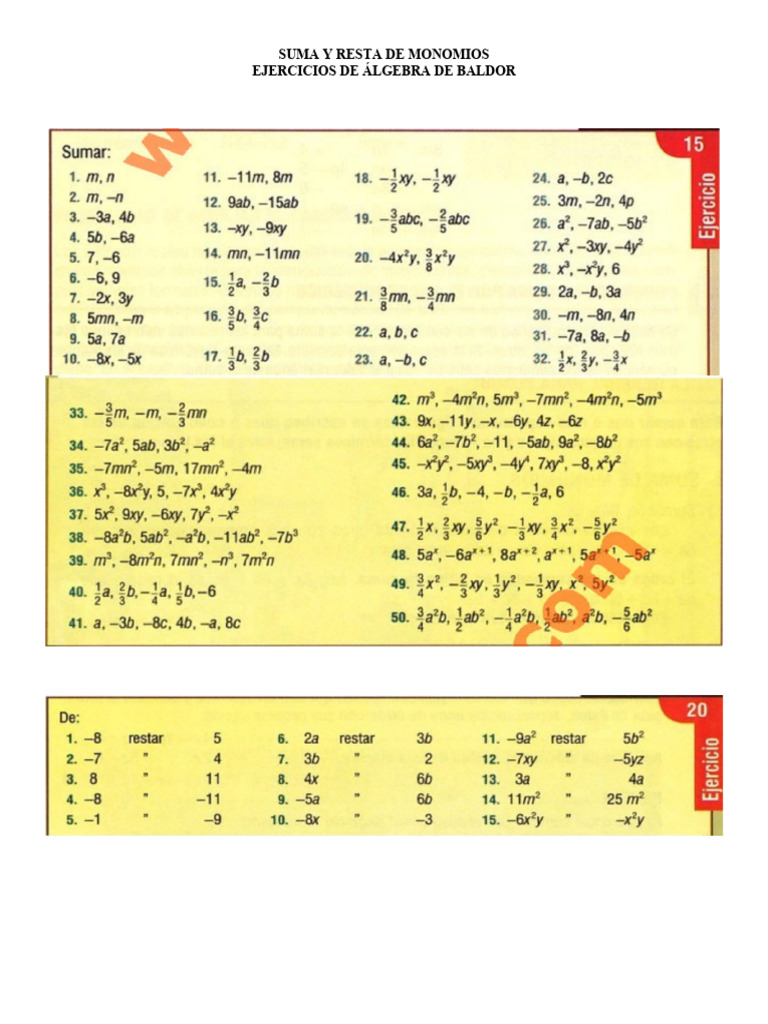 SUMA Y RESTA DE MONOMIOS
EJERCICIOS DE ÁLGEBRA DE BALDOR
Sumar:
15
Ejercicio
1. m, n
2. m, –n
3. –3a, 4b
4. 5b, –6a
5. 7, –6
6. –6, 9
7. –2x, 3y
8. 5mn, –m
9. 5a, 7a
10. –8x, –5x
11. –11m, 8m
12. 9ab, –15ab
13. –xy, –9xy
14. mn, –11mn
15. 1/2 a, –2/3 b
16. 3/5 b, 3/4 c
17. 1/3 b, 2/3 b
18. –1/2 xy, –1/2 xy
19. –3/5 abc, –2/5 abc
20. –4x²y, 3/8 x²y
21. 3/8 mn, –3/4 mn
22. a, b, c
23. a, –b, c
24. a, –b, 2c
25. 3m, –2n, 4p
26. a², –7ab, –5b²
27. x², –3xy, –4y²
28. x³, –x²y, 6
29. 2a, –b, 3a
30. –m, –8n, 4n
31. –7a, 8a, –b
32. 1/2 x, 2/3 y, –3/4 x
33. –3/5 m, –m, –2/3 mn
34. –7a², 5ab, 3b², –a²
35. –7mn², –5m, 17mn², –4m
36. x³, –8x²y, 5, –7x³, 4x²y
37. 5x², 9xy, –6xy, 7y², –x²
38. –8a²b, 5ab², –a²b, –11ab², –7b³
39. m³, –8m²n, 7mn², –n³, 7m²n
40. 1/2 a, 2/3 b, –1/4 a, 1/5 b, –6
41. a, –3b, –8c, 4b, –a, 8c
42. m³, –4m²n, 5m³, –7mn², –4m²n, –5m³
43. 9x, –11y, –x, –6y, 4z, –6z
44. 6a², –7b², –11, –5ab, 9a², –8b²
45. –x²y², –5xy³, –4y⁴, 7xy³, –8, x²y²
46. 3a, 1/2 b, –4, –b, –1/2 a, 6
47. 1/2 x, 2/3 xy, 5/6 y², –1/3 xy, 3/4 x², –5/6 y²
48. 5aˣ, –6aˣ⁺¹, 8aˣ⁺², aˣ⁺¹, 5aˣ⁺¹, –5aˣ
49. 3/4 x², –2/3 xy, 1/3 y², –1/3 xy, x², 5y²
50. 3/4 a²b, 1/2 ab², –1/4 a²b, 1/2 ab², a²b, –5/6 ab²
com
De:
20
Ejercicio
1. –8 restar 5
2. –7 " 4
3. 8 " 11
4. –8 " –11
5. –1 " –9
6. 2a restar 3b
7. 3b " 2
8. 4x " 6b
9. –5a " 6b
10. –8x " –3
11. –9a² restar 5b²
12. –7xy " –5yz
13. 3a " 4a
14. 11m² " 25 m²
15. –6x²y " –x²y